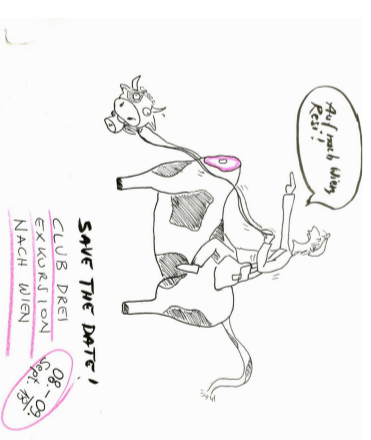 Auf nach Wien,
Resi!
SAVE THE DATE!
CLUB DREI
EXKURSION
NACH WIEN
08.-09
Sept.